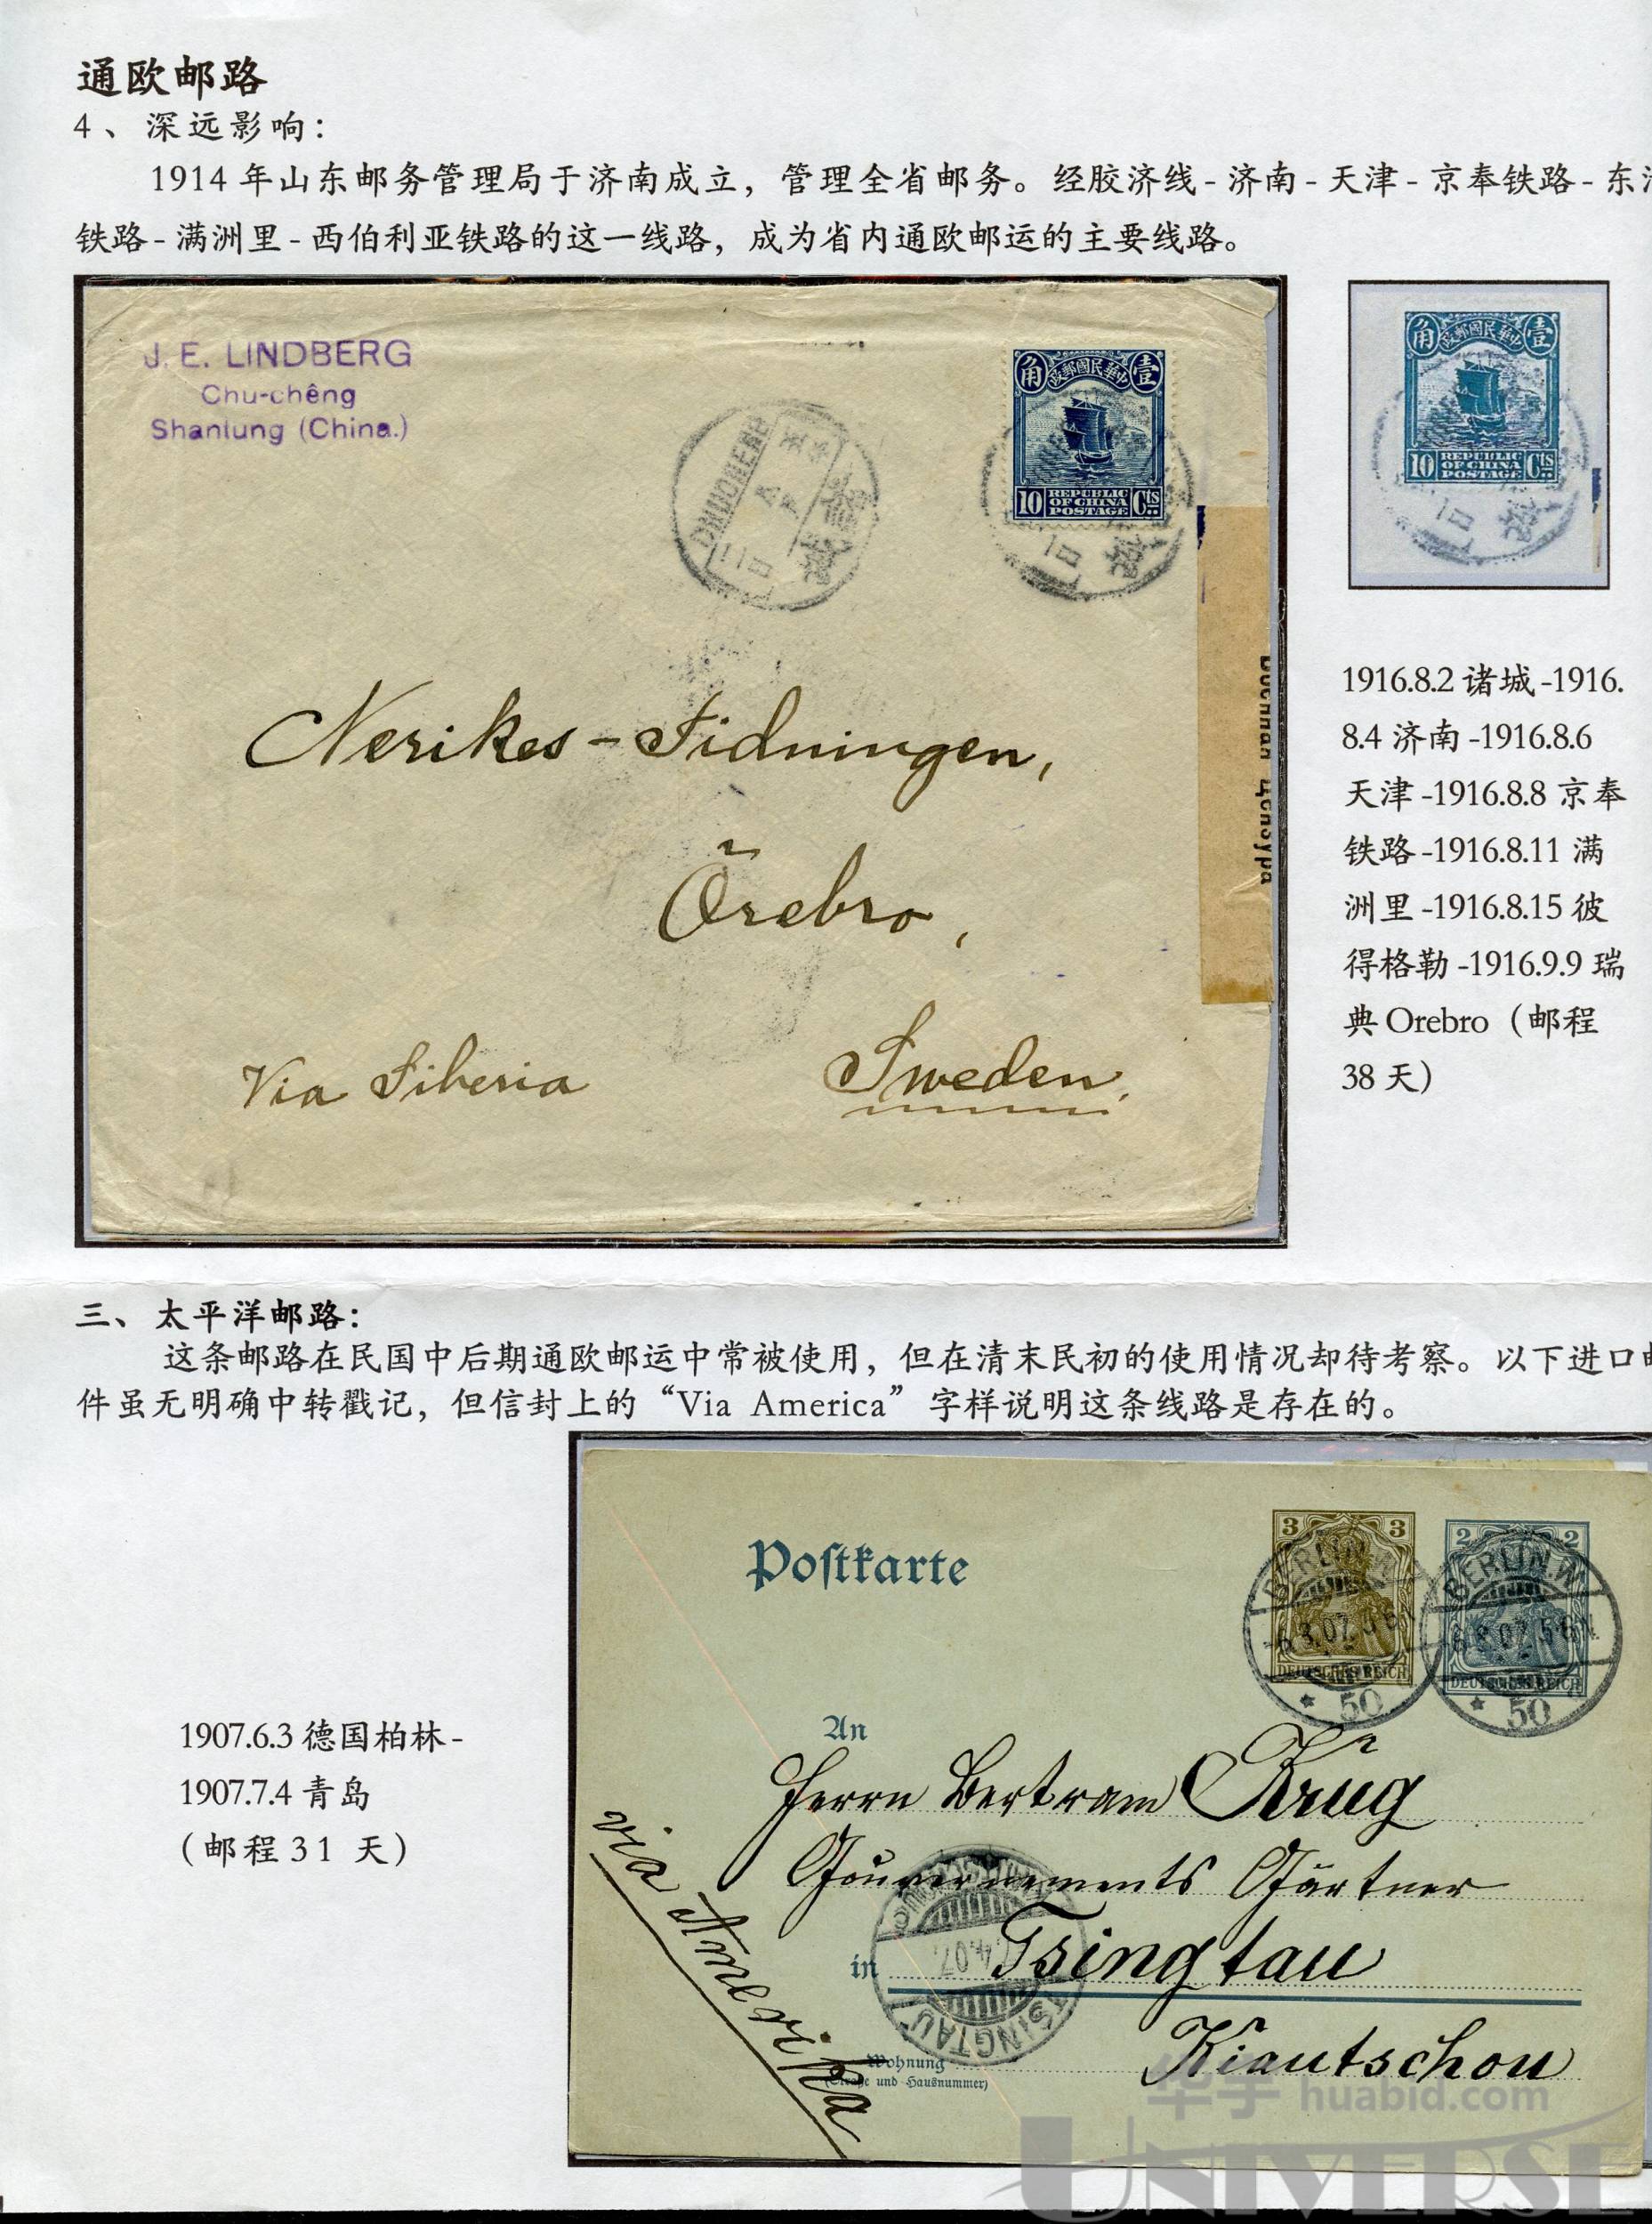 通欧邮路
4、深远影响：
1914年山东邮务管理局于济南成立，管理全省邮务。经胶济线-济南-天津-京奉铁路-东
铁路-满洲里-西伯利亚铁路的这一线路，成为省内通欧邮运的主要线路。
J. E. LINDBERG
Chu-chêng
Shantung (China.)
角 中華民國郵政 壹
10 REPUBLIC OF CHINA POSTAGE Cts
角 中華民國郵政 壹
10 REPUBLIC OF CHINA POSTAGE Cts
諸城
Nerikes-Tidningen,
Örebro,
Via Siberia
Sweden,
Военная цензура
1916.8.2诸城-1916.
8.4济南-1916.8.6
天津-1916.8.8京奉
铁路-1916.8.11满
洲里-1916.8.15彼
得格勒-1916.9.9瑞
典Orebro（邮程
38天）
三、太平洋邮路：
这条邮路在民国中后期通欧邮运中常被使用，但在清末民初的使用情况却待考察。以下进口
件虽无明确中转戳记，但信封上的“Via America”字样说明这条线路是存在的。
1907.6.3德国柏林-
1907.7.4青岛
（邮程31 天）
Postkarte
3 3
DEUTSCHES REICH
2 2
DEUTSCHES REICH
BERLIN.W.
50
BERLIN.W.
50
An
Herrn Bertram Krug
Gouvernements Gärtner
in Tsingtau
Kiautschou
via Amerika
TSINGTAU
Wohnung
(Straße und Hausnummer)
华宇 huabid.com
UNIVERSE